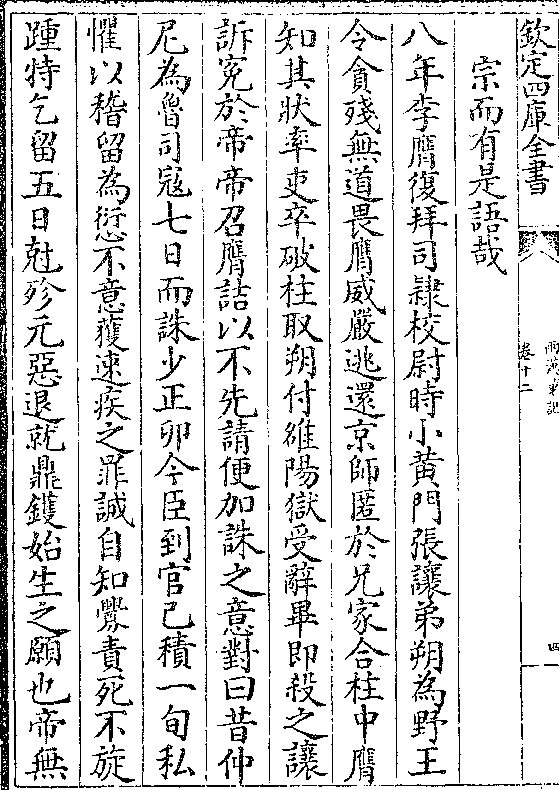 欽定四庫全書
兩漢筆記
卷十二
四
宗而有是語哉
八年李膺復拜司隷校尉時小黄門張讓弟朔為野王
令貪殘無道畏膺威嚴逃還京師匿於兄家合柱中膺
知其狀率吏卒破柱取朔付雒陽獄受辭畢即殺之讓
訴寃於帝帝召膺詰以不先請便加誅之意對曰昔仲
尼為魯司寇七日而誅少正卯今臣到官已積一旬私
懼以稽留為愆不意獲速疾之罪誠自知釁責死不旋
踵特乞留五日尅殄元惡退就鼎鑊始生之願也帝無